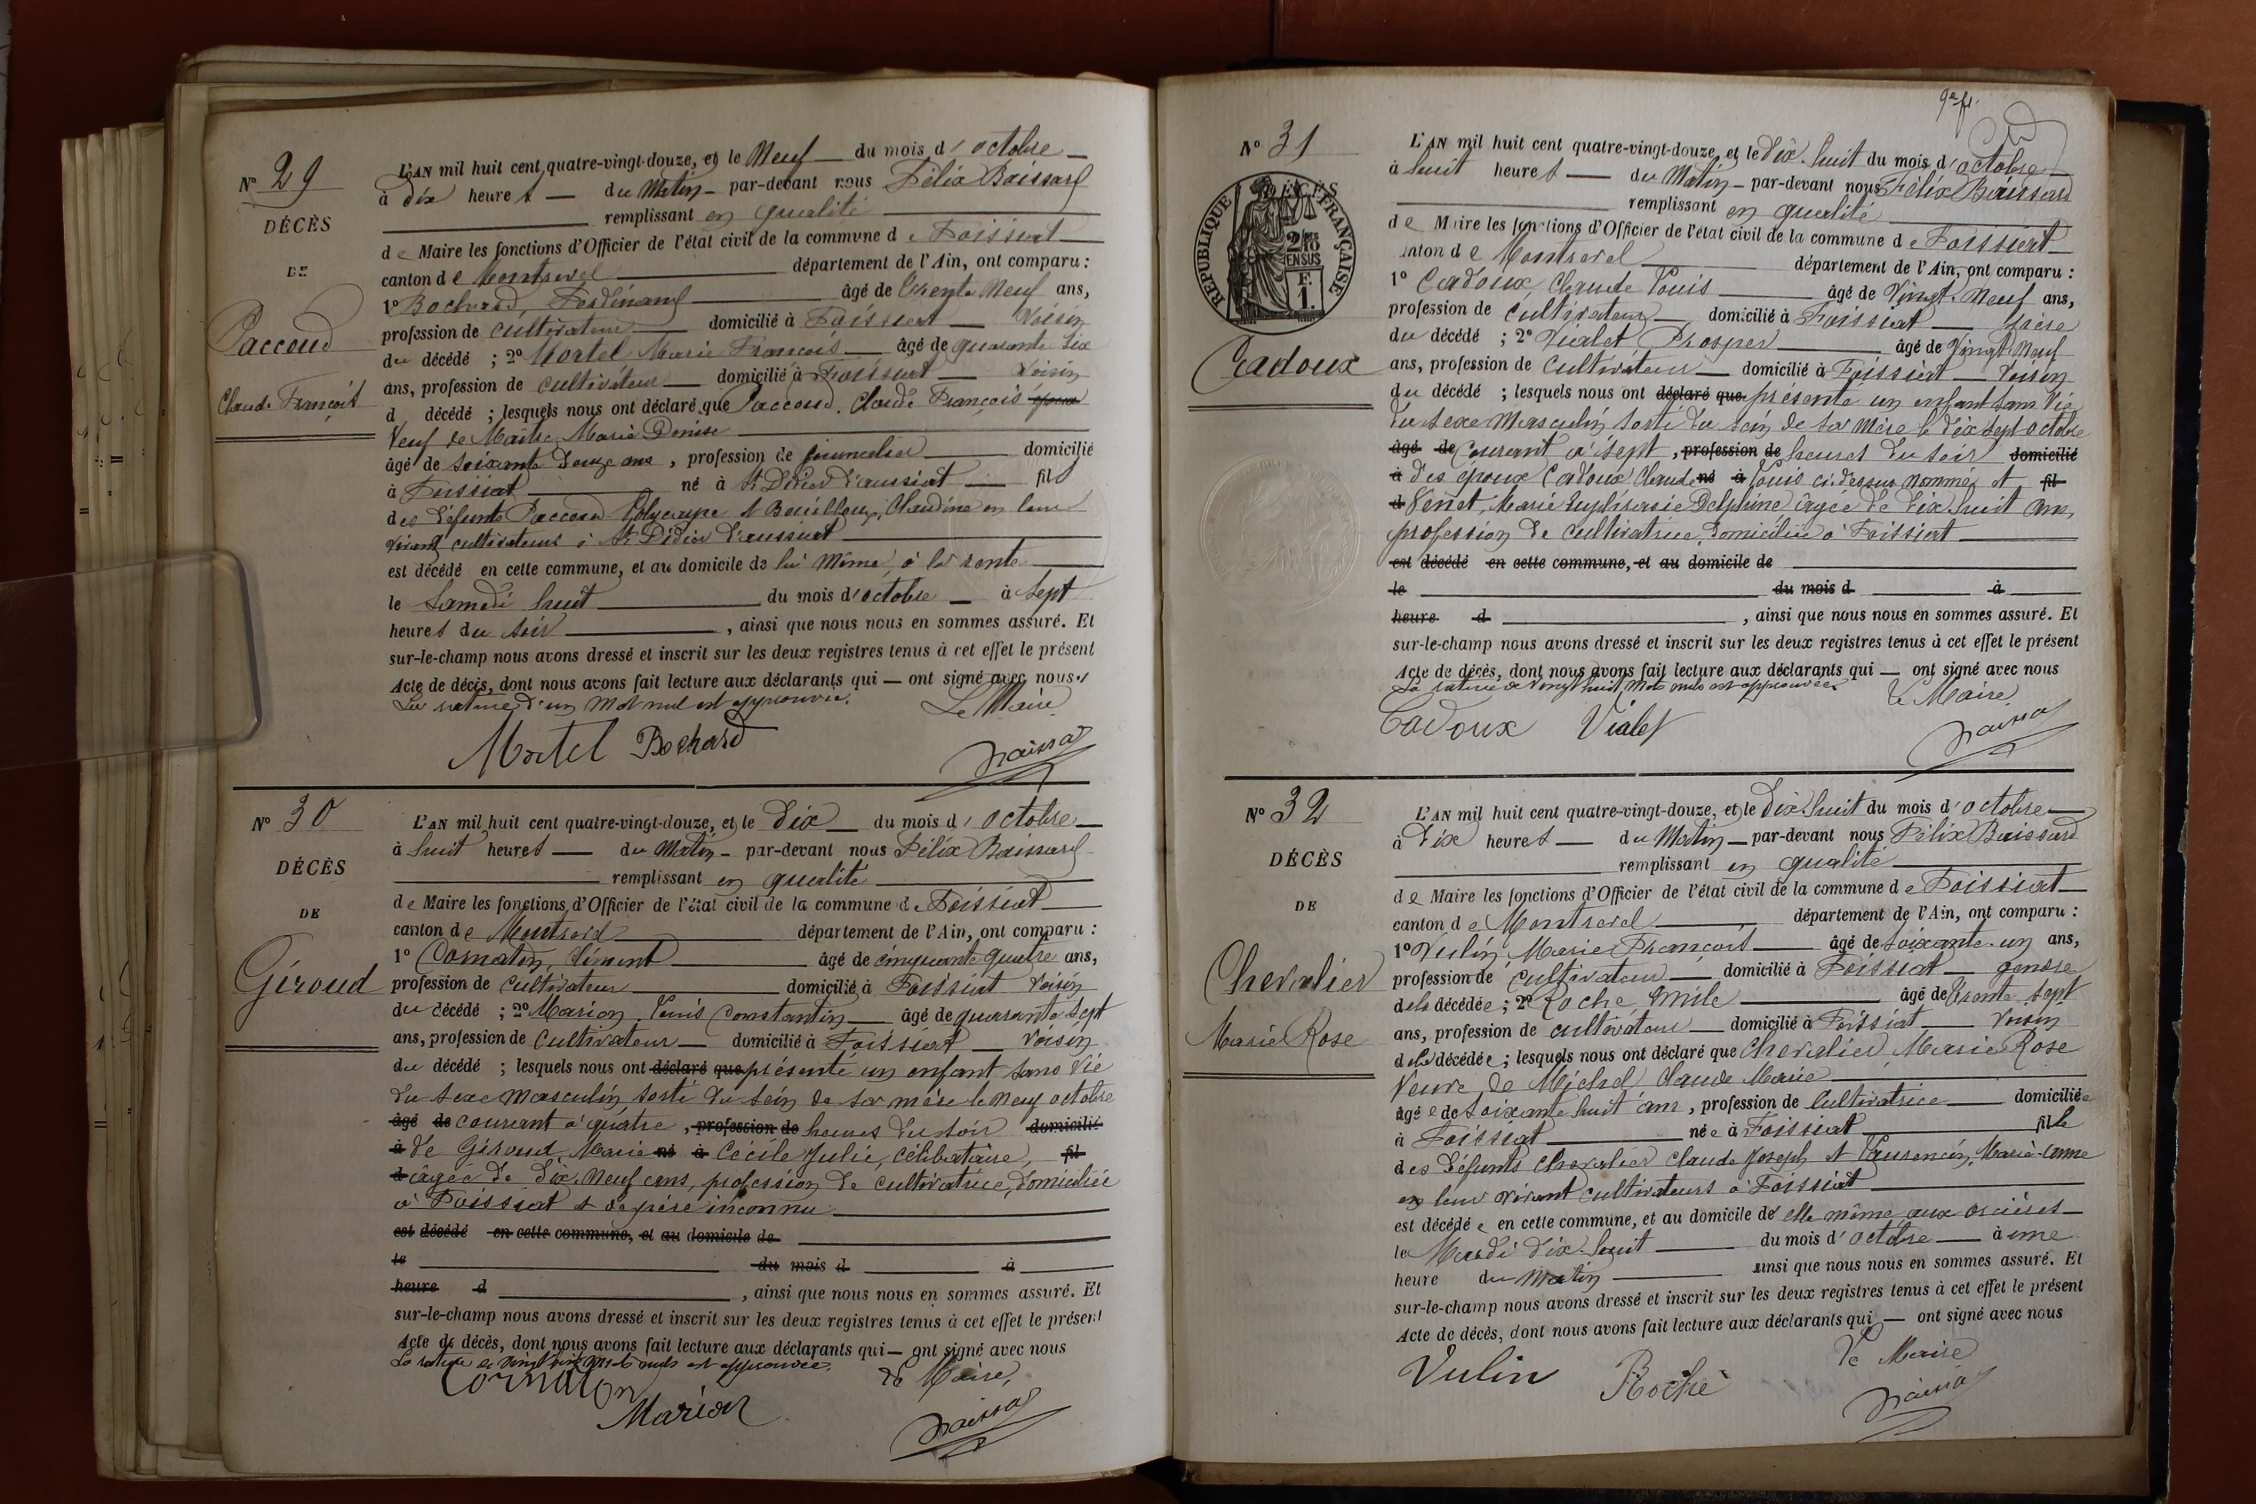 N° 29
DÉCÈS
DE
Paccoud
Claude François
L'AN mil huit cent quatre-vingt-douze, et le Neuf du mois d'octobre
à Dix heures du Matin par-devant nous Félix Baissard
remplissant en qualité
de Maire les fonctions d'Officier de l'état civil de la commune de Foissiat
canton de Montrevel département de l'Ain, ont comparu :
1° Bochard, Ferdinand âgé de trente Neuf ans,
profession de cultivateur domicilié à Foissiat Voisin
du décédé ; 2° Mortel Marie François âgé de quarante six
ans, profession de cultivateur domicilié à Foissiat Voisin
d décédé ; lesquels nous ont déclaré que Paccoud, Claude François époux
Veuf de Maître Marie Denise
âgé de soixante douze ans, profession de journalier domicilié
à Foissiat né à St Didier d'aussiat fils
des défunts Paccoud Polycarpe et Bouilloux, Claudine en leur
vivant cultivateurs à St Didier d'aussiat
est décédé en cette commune, et au domicile de lui même, à la
le Samedi huit du mois d'octobre à Sept
heures du soir, ainsi que nous nous en sommes assuré. Et
sur-le-champ nous avons dressé et inscrit sur les deux registres tenus à cet effet le présent
Acte de décès, dont nous avons fait lecture aux déclarants qui ont signé avec nous
La rature d'un mot nul est approuvée. Le Maire
Mortel Bochard Baissard
N° 30
DÉCÈS
DE
Giroud
L'AN mil huit cent quatre-vingt-douze, et le Dix du mois d'octobre
à huit heures du Matin par-devant nous Félix Baissard
remplissant en qualité
de Maire les fonctions d'Officier de l'état civil de la commune de Foissiat
canton de Montrevel département de l'Ain, ont comparu :
1° Cornaton, Clément âgé de cinquante quatre ans,
profession de cultivateur domicilié à Foissiat Voisin
du décédé ; 2° Marion, Constantin âgé de quarante sept
ans, profession de Cultivateur domicilié à Foissiat Voisin
du décédé ; lesquels nous ont déclaré que présenté un enfant sans Vie
du sexe masculin sorti du sein de sa mère le Neuf octobre
âgé de courant à quatre, profession de heures du soir domicilié
à de Giroud, Marie né à Cécile Julie, célibataire, fil
d âgée de dix Neuf ans, profession de cultivatrice, domiciliée
à Foissiat et de père inconnu
est décédé en cette commune, et au domicile de
le du mois d à
heure d, ainsi que nous nous en sommes assuré. Et
sur-le-champ nous avons dressé et inscrit sur les deux registres tenus à cet effet le présent
Acte de décès, dont nous avons fait lecture aux déclarants qui ont signé avec nous
La rature de vingt huit mots nuls est approuvée. Le Maire,
Cornaton
Marion Baissard
9e ft.
N° 31
RÉPUBLIQUE FRANÇAISE
DÉCÈS
2/10 EN SUS
F. 1.
Cadoux
L'AN mil huit cent quatre-vingt-douze, et le Dix huit du mois d'octobre
à huit heures du Matin par-devant nous Félix Baissard
remplissant en qualité
de Maire les fonctions d'Officier de l'état civil de la commune de Foissiat
canton de Montrevel département de l'Ain, ont comparu :
1° Cadoux, Claude Louis âgé de Vingt Neuf ans,
profession de cultivateur domicilié à Foissiat
du décédé ; 2° Vialet Prosper âgé de Vingt Neuf
ans, profession de cultivateur domicilié à Foissiat Voisin
du décédé ; lesquels nous ont déclaré que présenté un enfant sans Vie
du sexe Masculin sorti du sein de sa mère le dix sept octobre
âgé de courant à sept, profession de heures du soir domicilié
à des époux Cadoux Claude né à Louis ci dessus nommé et fil
d Venet, Marie Euphrasie Delphine âgée de dix huit ans,
profession de cultivatrice, domiciliée à Foissiat
est décédé en cette commune, et au domicile de
le du mois d à
heure d, ainsi que nous nous en sommes assuré. Et
sur-le-champ nous avons dressé et inscrit sur les deux registres tenus à cet effet le présent
Acte de décès, dont nous avons fait lecture aux déclarants qui ont signé avec nous
La rature de vingt huit mots nuls est approuvée. Le Maire
Cadoux Vialet Baissard
N° 32
DÉCÈS
DE
Chevalier
Marie Rose
L'AN mil huit cent quatre-vingt-douze, et le Dix huit du mois d'octobre
à Dix heures du Matin par-devant nous Félix Baissard
remplissant en qualité
de Maire les fonctions d'Officier de l'état civil de la commune de Foissiat
canton de Montrevel département de l'Ain, ont comparu :
1° Vulin, Marie François âgé de soixante un ans,
profession de cultivateur domicilié à Foissiat gendre
de la décédée ; 2° Roche, Emile âgé de trente sept
ans, profession de cultivateur domicilié à Foissiat Voisin
de la décédée ; lesquels nous ont déclaré que Chevalier, Marie Rose
Veuve de Michel, Claude Marie
âgée de soixante huit ans, profession de cultivatrice domiciliée
à Foissiat née à Foissiat fille
des défunts Chevalier Claude Joseph et Laurencin, Marie-Anne
en leur vivant cultivateurs à Foissiat
est décédée en cette commune, et au domicile de elle même, aux
le Mardi dix huit du mois d'octobre à une
heure du matin ainsi que nous nous en sommes assuré. Et
sur-le-champ nous avons dressé et inscrit sur les deux registres tenus à cet effet le présent
Acte de décès, dont nous avons fait lecture aux déclarants qui ont signé avec nous
Vulin Roche Le Maire
Baissard